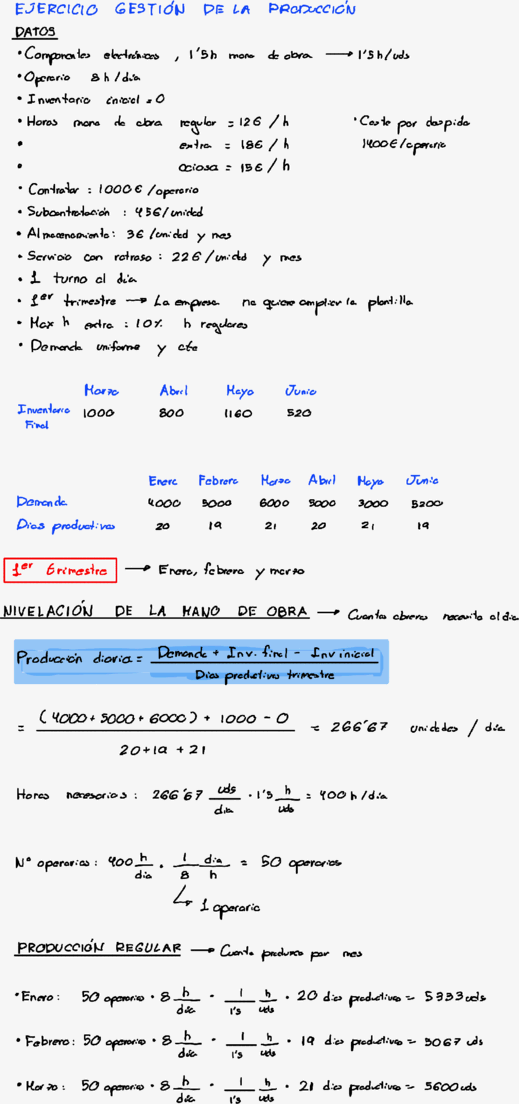 EJERCICIO GESTIÓN DE LA PRODUCCIÓN
DATOS
• Componentes electrónicos, 1'5h mano de obra → 1'5h/uds
• Operario 8h/día
• Inventario inicial = 0
• Horas mano de obra regular = 12€/h
• Coste por despido
• extra = 18€/h
1400€/operario
• ociosa = 15€/h
• Contratar: 1000€/operario
• Subcontratación: 45€/unidad
• Almacenamiento: 3€/unidad y mes
• Servicio con retraso: 22€/unidad y mes
• 1 turno al día
• 1er trimestre → La empresa no quiere ampliar la plantilla
• Max h extra: 10% h regulares
• Demanda uniforme y cte
Marzo Abril Mayo Junio
Inventario 1000 800 1160 520
Final
Enero Febrero Marzo Abril Mayo Junio
Demanda 4000 5000 6000 5000 3000 5200
Días productivos 20 19 21 20 21 19
1er trimestre → Enero, febrero y marzo
NIVELACIÓN DE LA MANO DE OBRA → Cuantos obreros necesito al día
Producción diaria = Demanda + Inv. final - Inv inicial
Días productivos trimestre
= (4000 + 5000 + 6000) + 1000 - 0 = 266'67 unidades / día
20 + 19 + 21
Horas necesarias: 266'67 uds/día · 1'5 h/uds = 400 h/día
Nº operarios: 400 h/día · 1/8 día/h = 50 operarios
1 operario
PRODUCCIÓN REGULAR → Cuanto produzco por mes
• Enero: 50 operario · 8 h/día · 1/1'5 h/uds · 20 días productivos = 5333 uds
• Febrero: 50 operario · 8 h/día · 1/1'5 h/uds · 19 días productivos = 5067 uds
• Marzo: 50 operario · 8 h/día · 1/1'5 h/uds · 21 días productivos = 5600 uds